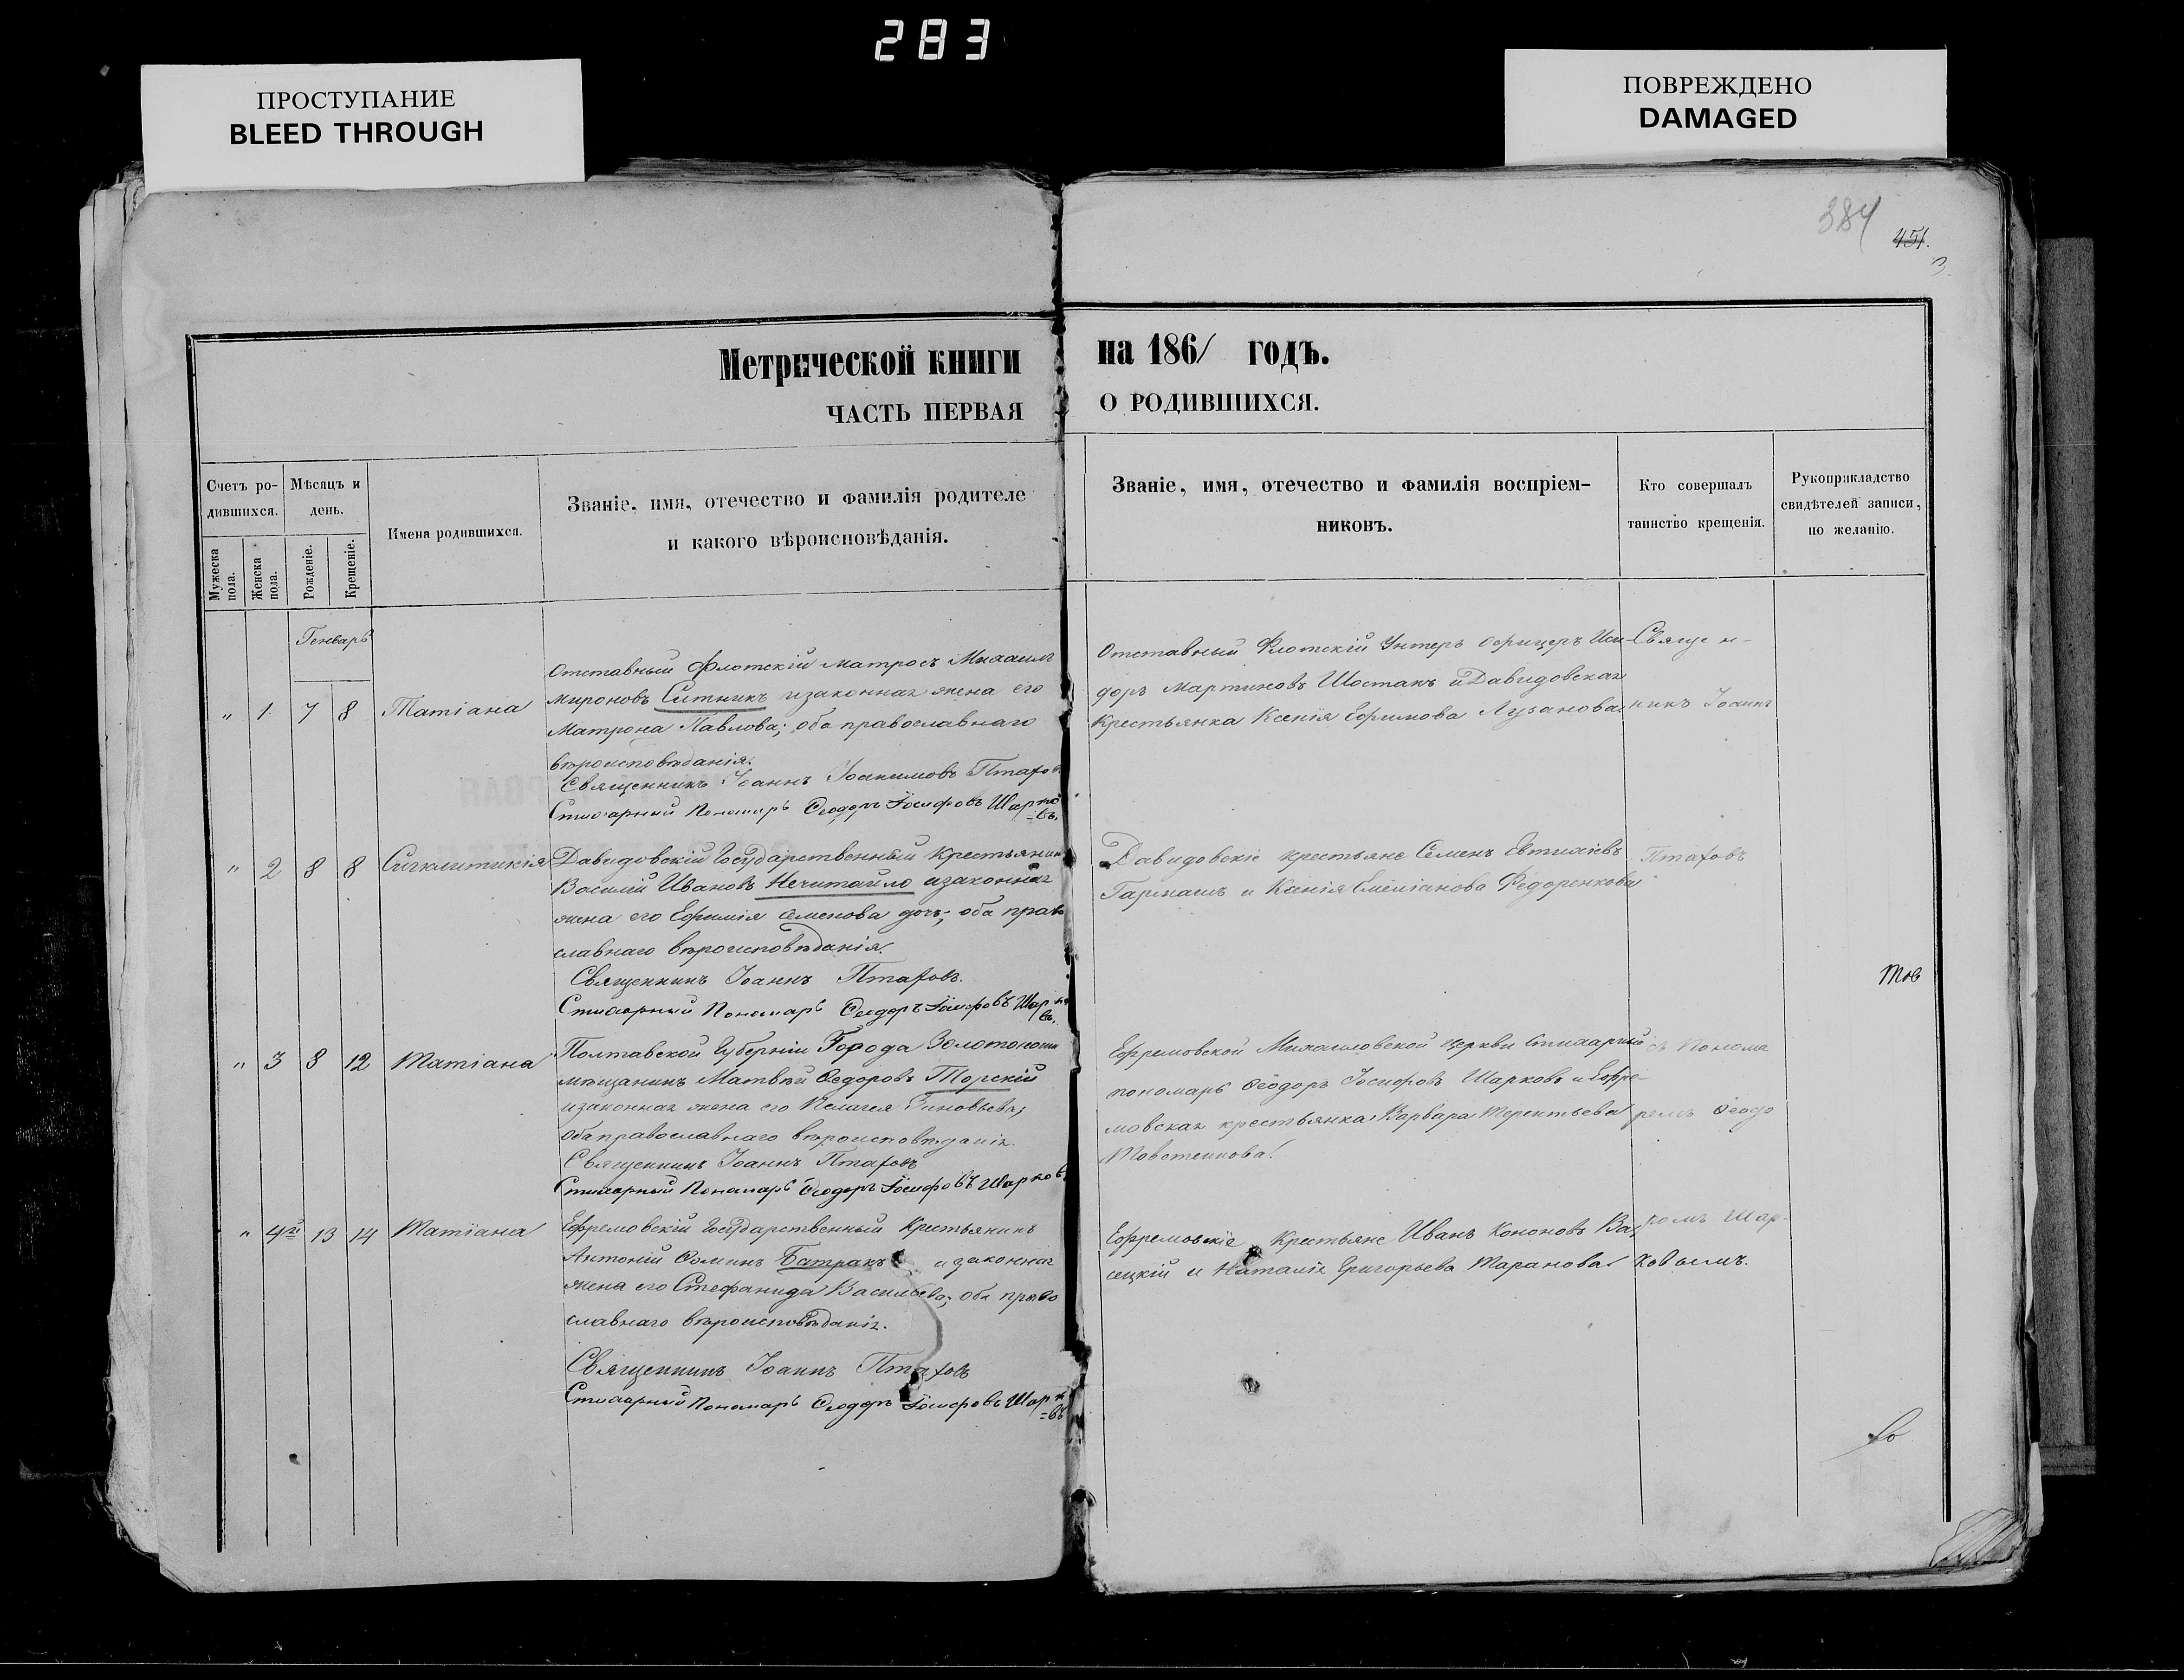 283
ПРОСТУПАНИЕ
BLEED THROUGH
ПОВРЕЖДЕНО
DAMAGED
384
451.
Метрической книги
ЧАСТЬ ПЕРВАЯ
Счетъ ро-
дившихся.
Мѣсяцъ и
день.
Мужеска
пола.
Женска
пола.
Рожденіе.
Крещеніе.
Имена родившихся.
Званіе, имя, отечество и фамилія родителе
и какого вѣроисповѣданія.
Генварь
" 1 7 8 Татіана
Отставный Флотскій матросъ Михаилъ
Мироновъ Ситникъ и законная жена его
Матрона Павлова; оба православнаго
вѣроисповѣданія.
Священникъ Іоаннъ Іоакимовъ Птаховъ
Стихарный Пономарь Ѳеодоръ Іосифовъ Шарко
=въ.
" 2 8 8 Сигклитикія
Давидовскій Государственный Крестьянинъ
Василій Ивановъ Нечитайло и законная
жена его Ефимія Семенова дочь; оба право
славнаго вѣроисповѣданія.
Священникъ Іоаннъ Птаховъ.
Стихарный Пономарь Ѳеодоръ Іосифовъ Шарко
въ.
" 3 8 12 Татіана
Полтавской Губерніи Города Золотоноши
мѣщанинъ Матвѣй Ѳедоровъ Торскій
и законная жена его Пелагея Зиновьева;
оба православнаго вѣроисповѣданія.
Священникъ Іоаннъ Птаховъ
Стихарный Пономарь Ѳеодоръ Іосифовъ Шарковъ
" 4й 13 14 Татіана
Ефремовскій Государственный Крестьянинъ
Антоній Ѳоминъ Батракъ и законная
жена его Стефанида Васильева; оба право
славнаго вѣроисповѣданія.
Священникъ Іоаннъ Птаховъ
Стихарный Пономарь Ѳеодоръ Іосифовъ Шарко
=въ
на 1861 годъ.
О РОДИВШИХСЯ.
Званіе, имя, отечество и фамилія воспріем-
никовъ.
Кто совершалъ
таинство крещенія.
Рукоприкладство
свидѣтелей записи,
по желанію.
Отставный Флотскій Унтеръ Офицеръ Иси-
доръ Мартиновъ Шостакъ и Давидовская
Крестьянка Ксенія Ефимова Лузанова
Давидовскіе крестьяне Семенъ Евтихіевъ
Гармашъ и Ксенія Емеліанова Федоренкова
Ефремовской Михаиловской Церкви Стихарный
пономарь Ѳеодоръ Іосифовъ Шарковъ и Ефре-
мовская крестьянка Варвара Терентьева
Товстенкова.
Ефремовскіе Крестьяне Иванъ Кононовъ Ва-
сецкій и Наталія Григорьева Таранова
Священ-
никъ Іоаннъ
Птаховъ
съ Понома
ремъ Ѳеодо
ромъ Шар-
ковымъ.